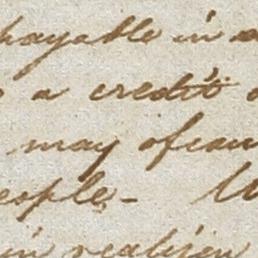 payable in a
a credit
may of can
eople - W
in realizin